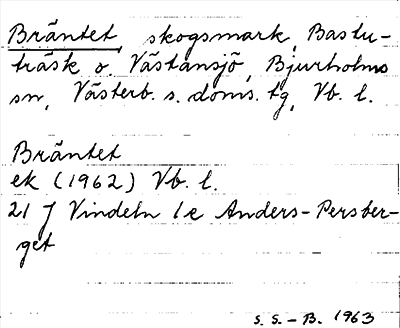 Bräntet, skogsmark, Bastu-
träsk o. Västansjö, Bjurholms
sn, Västerb. s. doms. tg, Vb. l.
Bräntet
ek (1962) Vb. l.
21 J Vindeln 1e Anders-Persber-
get
S. S. - B. 1963